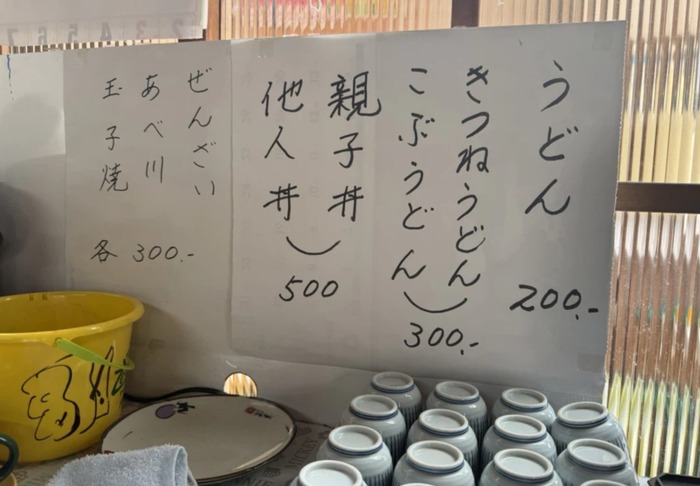 うどん
200.-
きつねうどん
こぶうどん
300.-
親子丼
他人丼
500
ぜんざい
あべ川
玉子焼
各 300.-